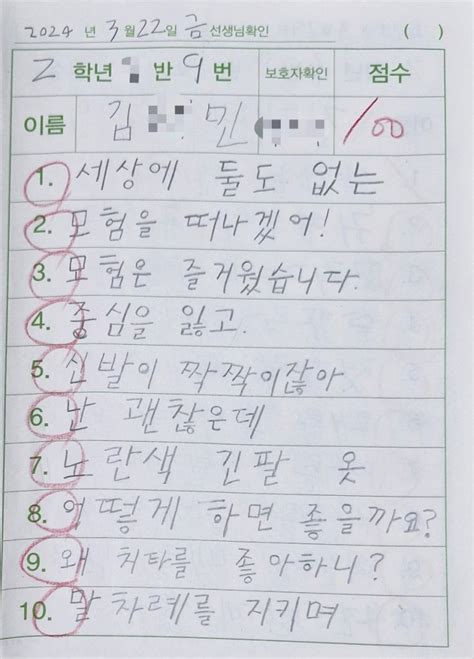 2024 년 3월 22일 금 선생님확인 ( )
2 학년 반 9 번 보호자확인 점수
이름 김 민 100
1. 세상에 둘도 없는
2. 모험을 떠나겠어!
3. 모험은 즐거웠습니다.
4. 중심을 잃고.
5. 신발이 짝짝이잖아
6. 난 괜찮은데
7. 노란색 긴팔 옷
8. 어떻게 하면 좋을까요?
9. 왜 치타를 좋아하니?
10. 말 차례를 지키며